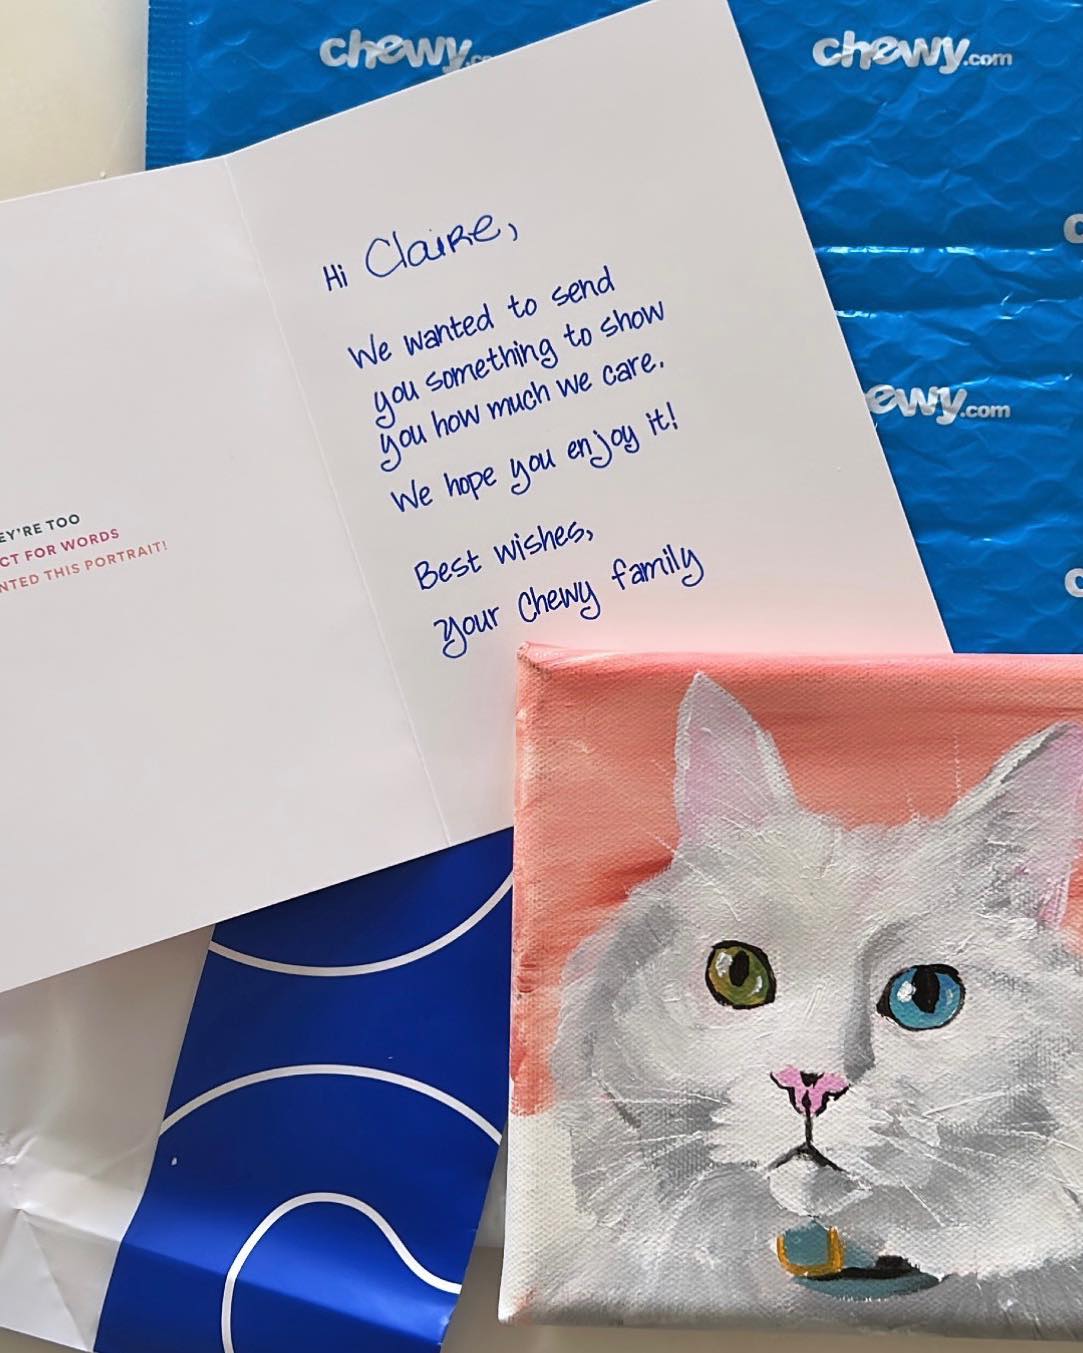 chewy.c
chewy.com
Hi Claire,
We wanted to send
you something to show
you how much we care.
We hope you enjoy it!
Best wishes,
your Chewy family
EY'RE TOO
CT FOR WORDS
NTED THIS PORTRAIT!
ewy.com
c
c